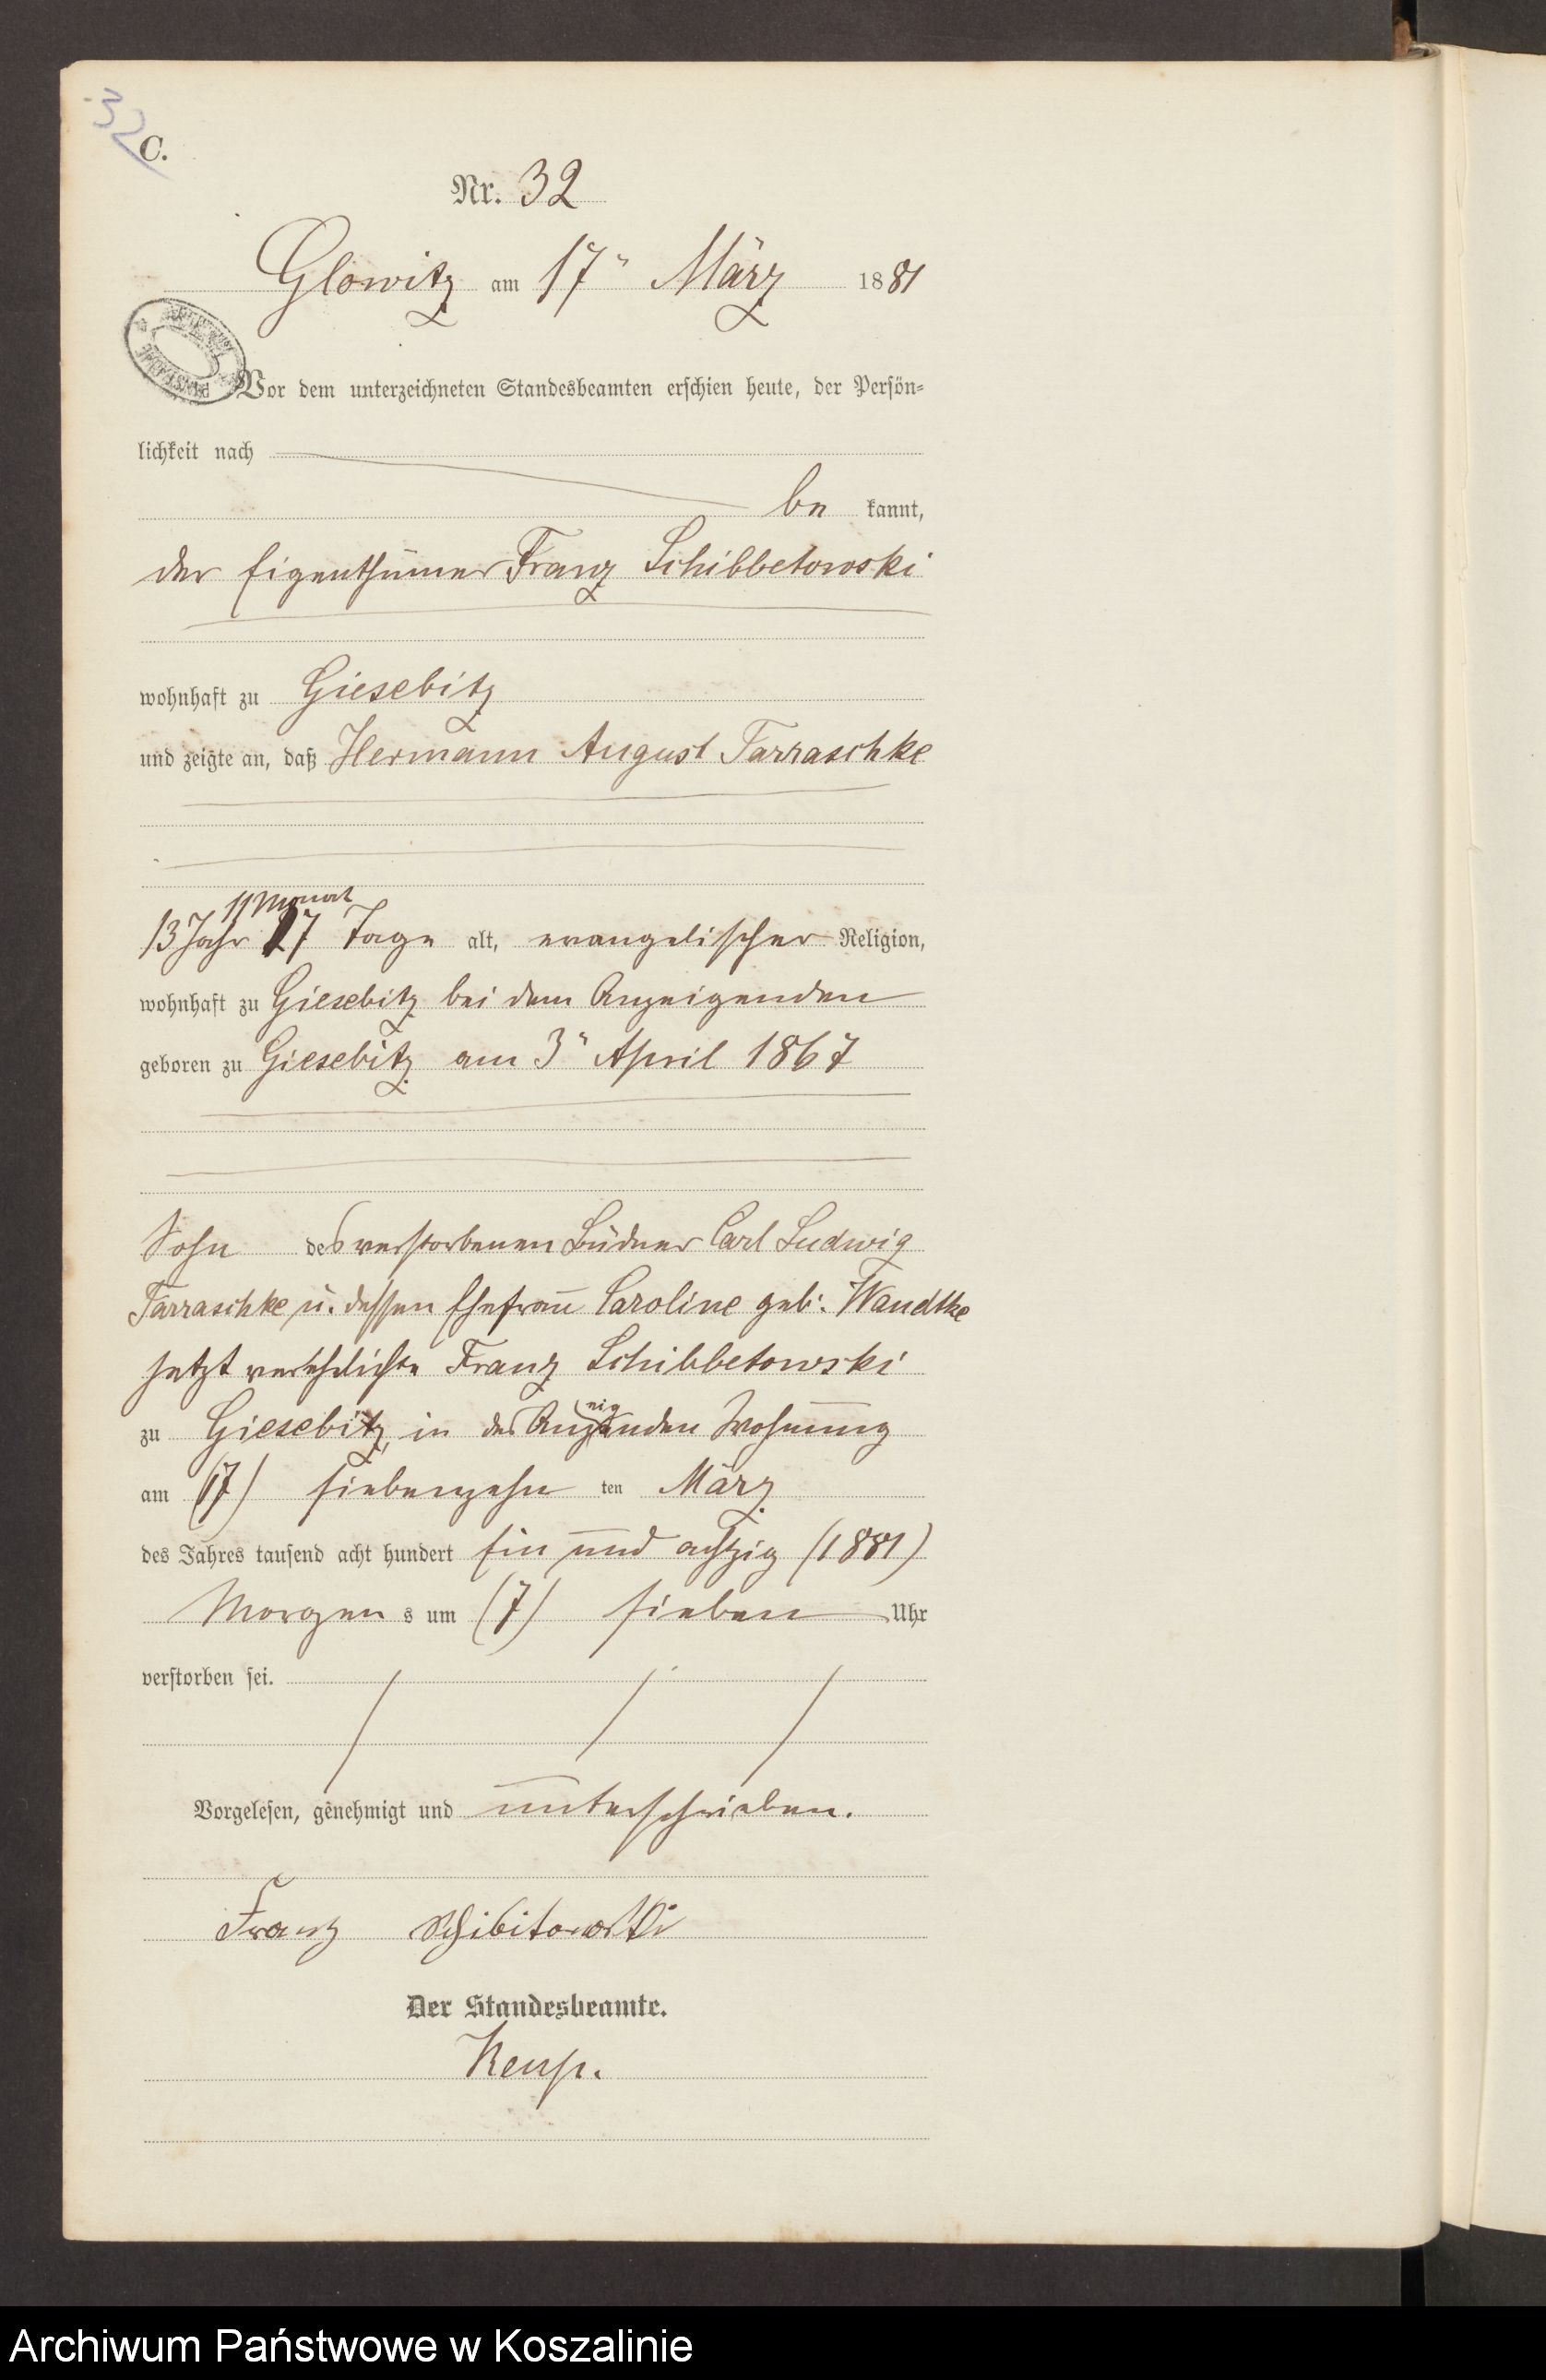 32
C.
Nr. 32
Glowitz am 17" März 1881
Vor dem unterzeichneten Standesbeamten erschien heute, der Persön-
lichkeit nach
be kannt,
der Eigenthümer Franz Schibbetowski
wohnhaft zu Giesebitz
und zeigte an, daß Hermann August Tarraschke
11 Monat
13 Jahr 17 Tage alt, evangelischer Religion,
wohnhaft zu Giesebitz bei dem Anzeigenden
geboren zu Giesebitz am 3" April 1867
Sohn des verstorbenen Büdner Carl Ludwig
Tarraschke u. dessen Ehefrau Caroline geb: Wandtke
jetzt verehelichte Franz Schibbetowski
zu Giesebitz, in des Anzeigenden Wohnung
am (17) siebenzehn ten März
des Jahres tausend acht hundert Ein und achtzig (1881)
Morgen s um (7) sieben Uhr
verstorben sei.
Vorgelesen, genehmigt und unterschrieben.
Franz Schibitowski
Der Standesbeamte.
Archiwum Państwowe w Koszalinie